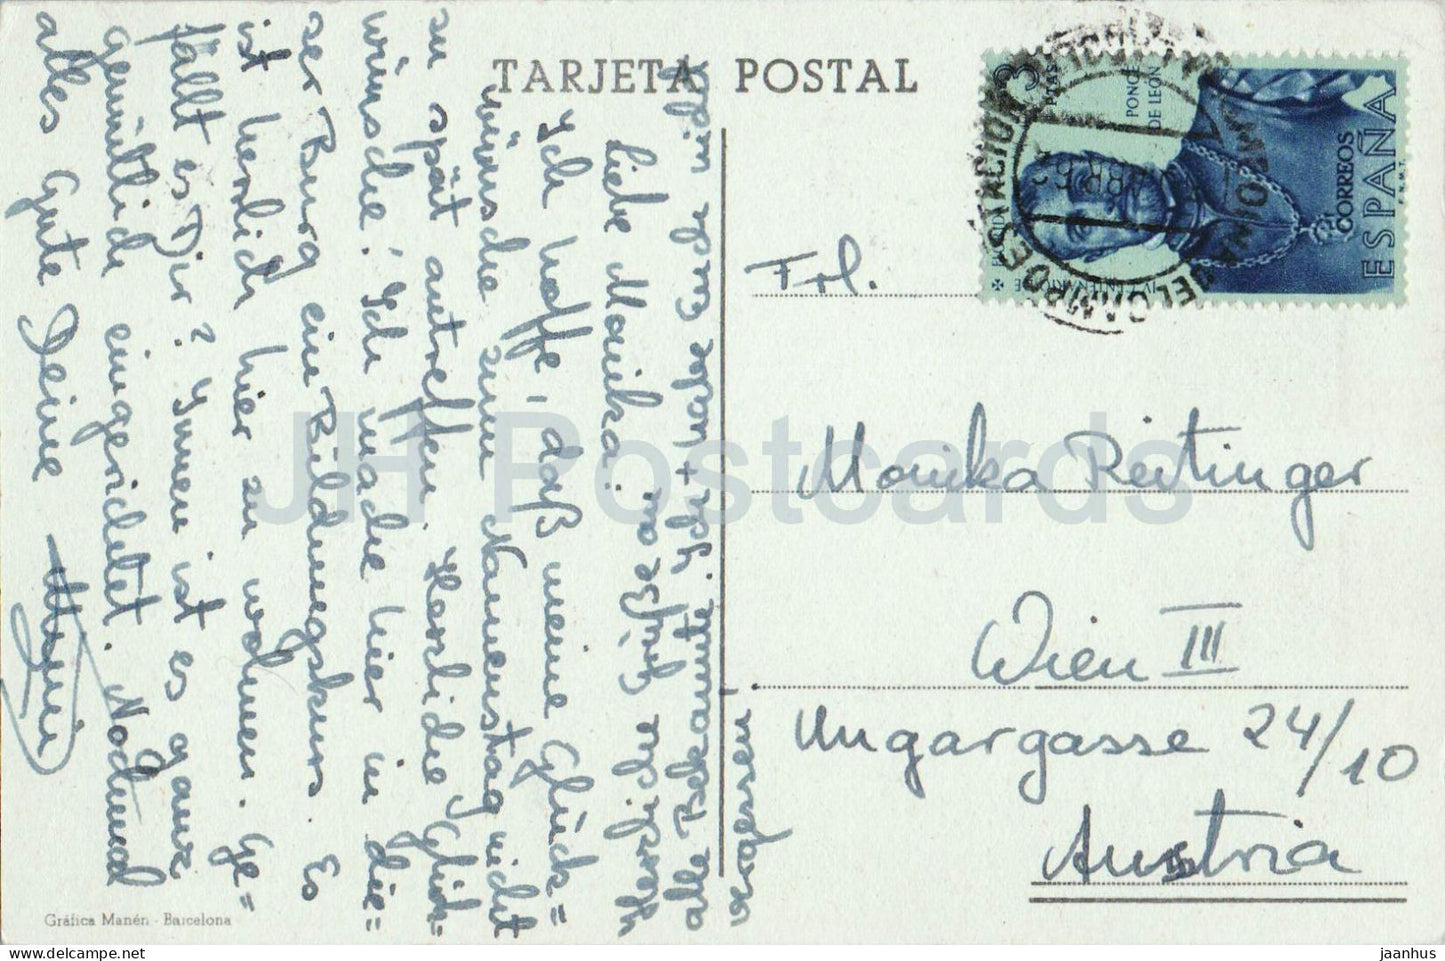 TARJETA POSTAL
Liebe Monika!
Ich hoffe, daß meine Glück=
wünsche zum Namenstag nicht
zu spät eintreffen. Herzliche Glück=
wünsche! Ich mache hier in die=
ser Burg ein Bildungskurs. Es
ist herrlich hier zu wohnen. Ge=
fällt es Dir? Innen ist es ganz
gemütlich eingerichtet. Nochmal
alles Gute Deine
Herzliche Grüße an
alle Bekannte. Ich + habe Euch nicht
vergessen
Gráfica Manén - Barcelona
3 PTAS
PONCE
DE LEON
CORREOS
ESPAÑA
F.N.M.T.
ESTACION
MEDINA DEL CAMPO
ABR 62
Frl.
Monika Reitinger
Wien III
Ungargasse 24/10
Austria
JH Postcards
jaanhus